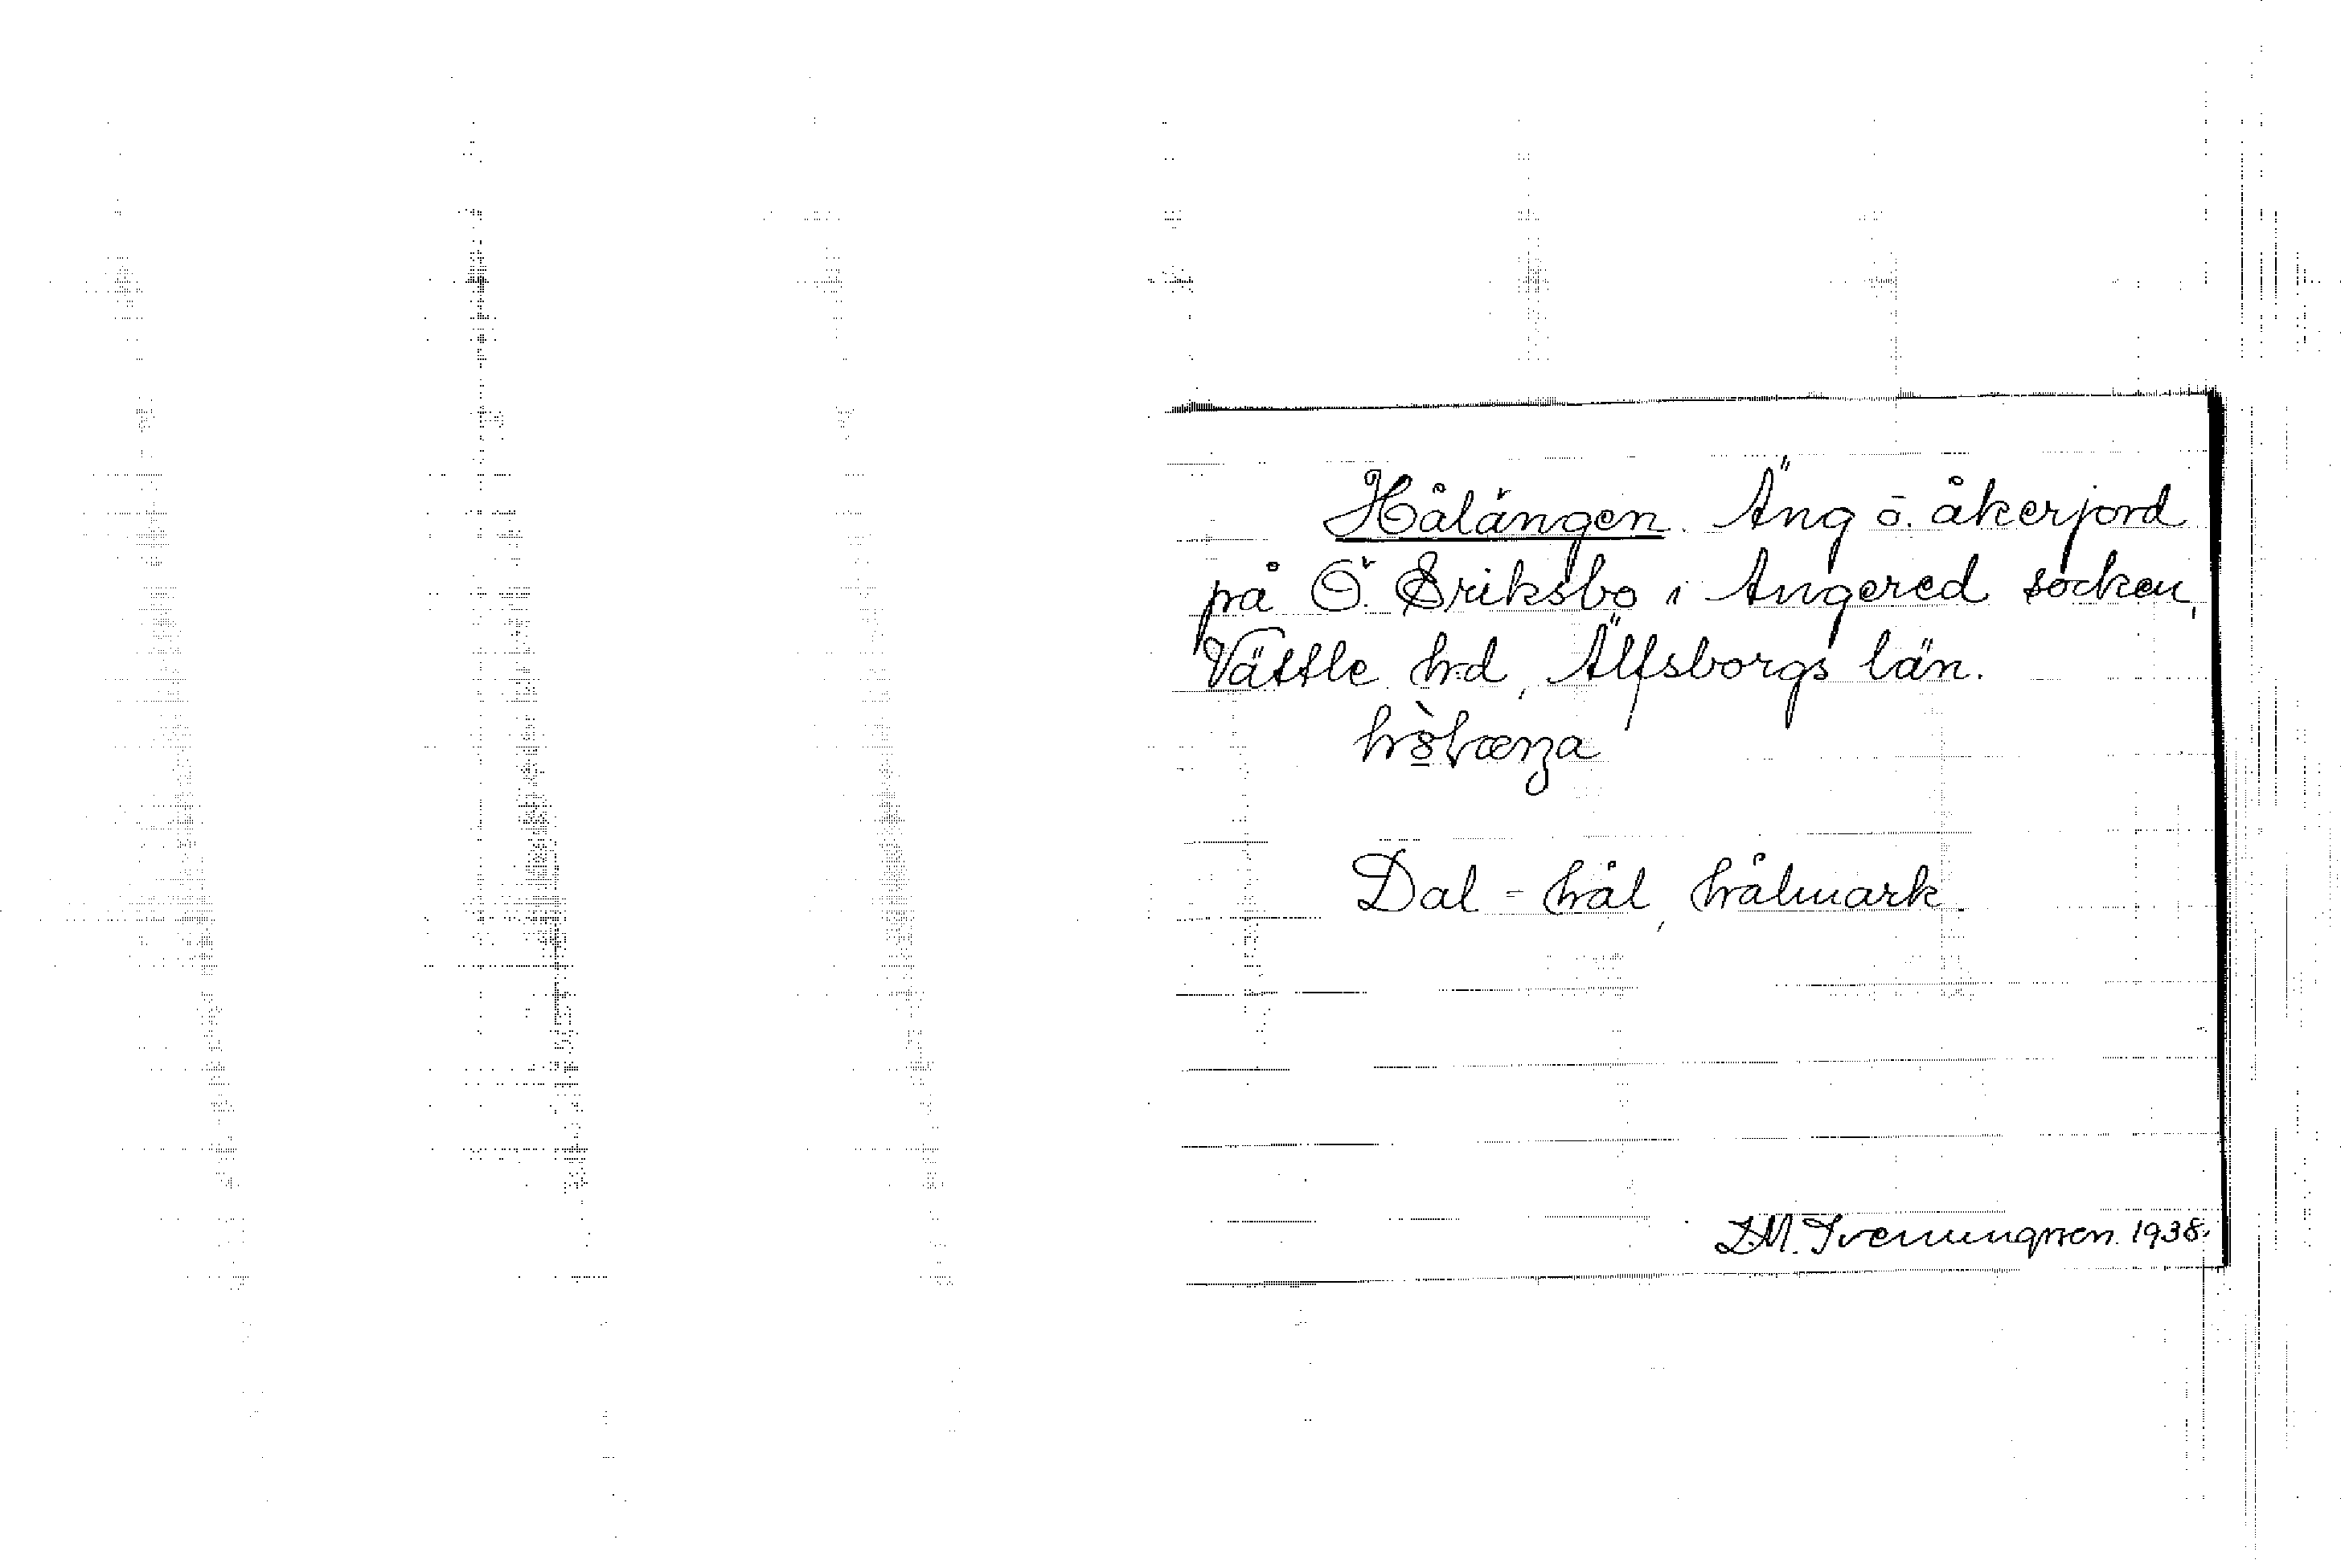 Hålängen. Äng o. åkerjord
på Ö. Eriksbo i Angered socken,
Vättle hd, Älfsborgs län.
Dal = hål, hålmark.
I.M. Svenungsson. 1938.